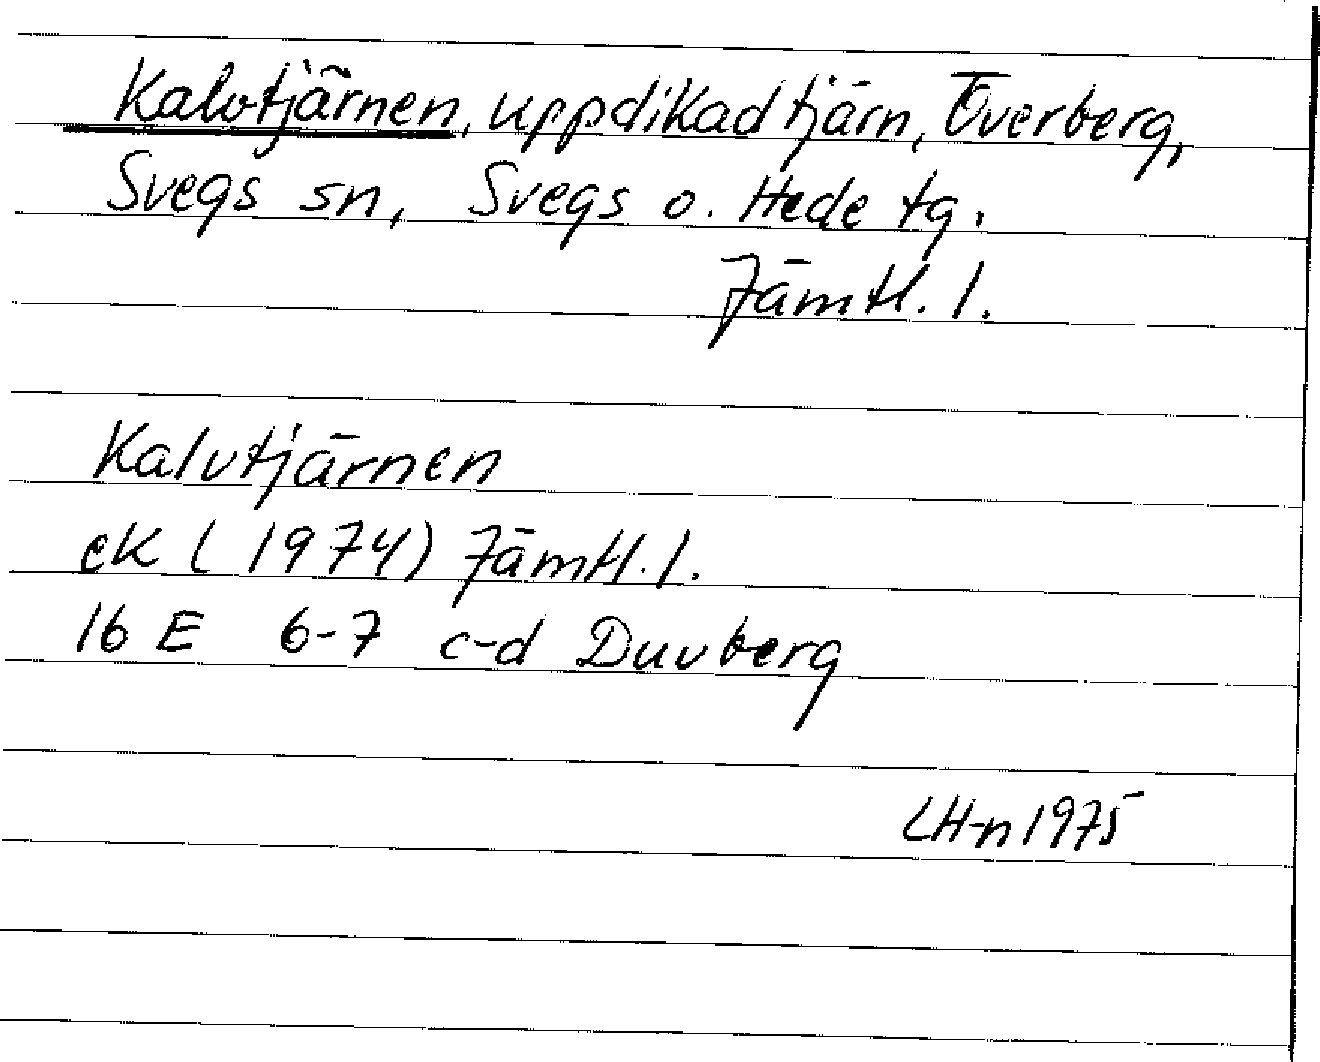 Kalvtjärnen, uppdikad tjärn, Överberg,
Svegs sn, Svegs o. Hede tg.
Jämtl. l.
Kalvtjärnen
ek (1974) Jämtl. l.
16 E 6-7 c-d Duvberg
LH-n 1975